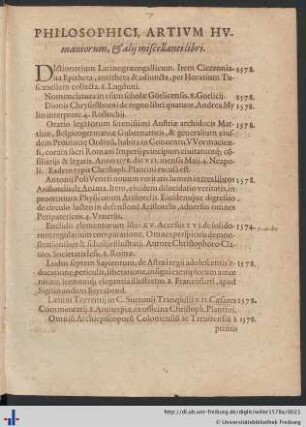 PHILOSOPHICI, ARTIVM HV-
maniorum, & alij miscellanei libri.
DIctionarium Latinogræcogallicum. Item Ciceronia- 1578.
na Epitheta, antitheta & adiuncta, per Horatium Tu-
scanellam collecta. 8. Lugduni.
Nomenclatura in vsum scholæ Görlicensis. 8. Gorlicij. 1578.
Dionis Chrysostomi de regno libri quatuor, Andrea My 1578.
lio interprete. 4. Rostochij.
Oratio legatorum serenissimi Austriæ archiducis Mat- 1578.
thiæ, Belgicogermaniæ Gubernatoris, & generalium eius-
dem Prouinciæ Ordinū, habita in Conuentu VVormacien-
si, coram sacri Romani Imperij principum ciuitatumq́; cō-
siliarijs & legatis. Anno 1578. die VII. mensis Maij. 4. Neapo-
li. Eadem typis Christoph. Plantini excusa est.
Antonij Poli Veneti nouum veritatis lumen in tres libros 1578.
Aristotelis de Anima. Item, eiusdem dilucidatio veritatis, in
proœmium Physicorum Aristotelis. Eiusdemque digressio
de circulo lacteo in defensionē Aristotelis, aduersus omnes
Peripateticos. 4. Venetijs.
Euclidis elementorum libri XV. Acceßit XVI. de solido- 1574.
rum regularium comparatione. Omnes perspicuis demon-
strationibus & scholijs illustrati. Autore Christophoro Cla-
uio Societatis Iesu. 8. Romæ.
Ludus septem Sapientum, de Astræi regij adolescentis e- 1578.
ducatione, periculis, liberatione, insigni exemplorum amœ-
nitate, iconumq́; elegantia illustratus. 8. Francofurti, apud
Sigismundum Feyrabend.
Læuini Torrentij in C. Suetonij Tranquilli XII. Cæsares 1578.
Commentarij. 8. Antuerpiæ, ex officina Christoph. Plantini.
Omniū Archiepiscoporū Coloniensiū ac Treuirensiū à 1578.
primis
http://dl.ub.uni-freiburg.de/diglit/willer1578a/0021
© Universitätsbibliothek Freiburg